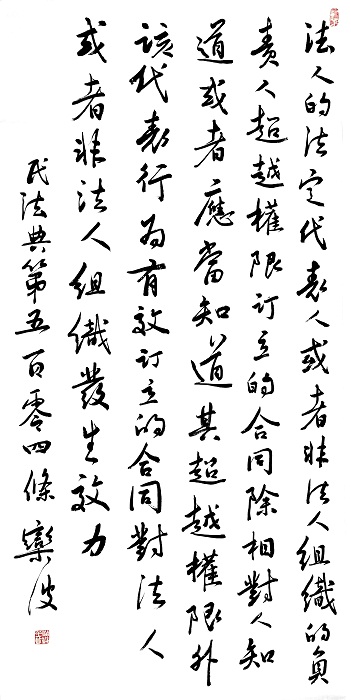 法人的法定代表人或者非法人组織的負
責人超越權限訂立的合同除相對人知
道或者應當知道其超越權限外
該代表行为有效訂立的合同對法人
或者非法人组織發生效力
民法典第五百零四條欒波